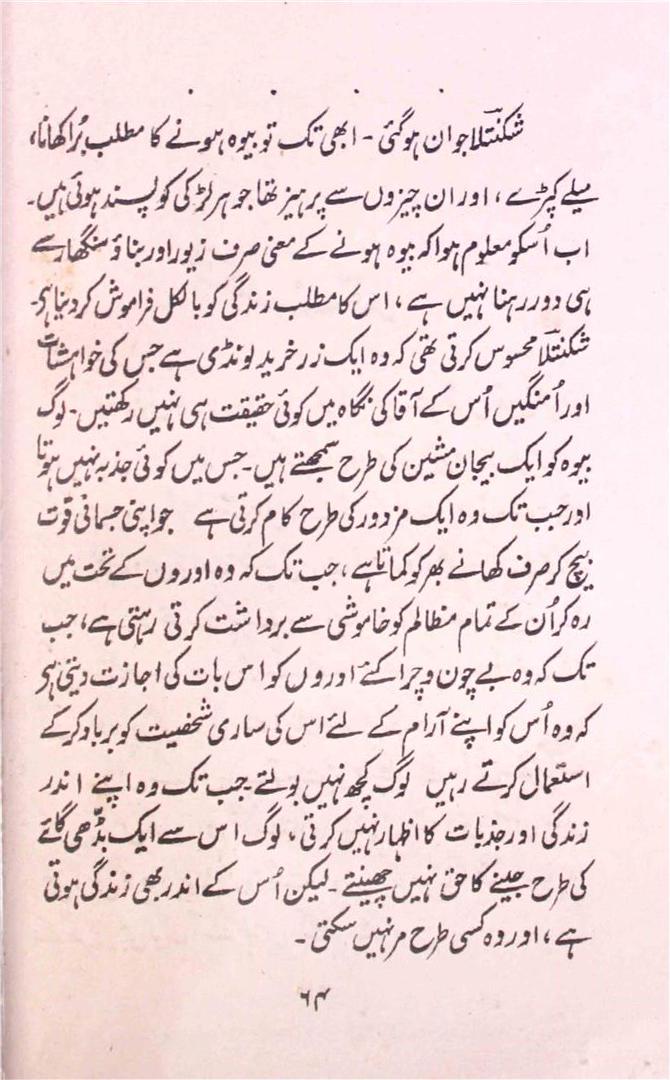 شکنتلا جوان ہوگئی - ابھی تک تو بیوہ ہونے کا مطلب بُرا کھانا،
میلے کپڑے ، اور ان چیزوں سے پرہیز تھا جو ہر لڑکی کو پسند ہوتی ہیں۔
اب اُسکو معلوم ہوا کہ بیوہ ہونے کے معنی صرف زیور اور بناؤ سنگھار سے
ہی دور رہنا نہیں ہے ، اس کا مطلب زندگی کو بالکل فراموش کر دینا ہی۔
شکنتلا محسوس کرتی تھی کہ وہ ایک زر خرید لونڈی ہے جس کی خواہشات
اور اُمنگیں اُس کے آقا کی نگاہ میں کوئی حقیقت ہی نہیں رکھتیں۔ لوگ
بیوہ کو ایک بیجان مشین کی طرح سمجھتے ہیں۔ جس میں کوئی جذبہ نہیں ہوتا
اور جب تک وہ ایک مزدور کی طرح کام کرتی ہے جو اپنی جسمانی قوت
بیچ کر صرف کھانے بھر کو کماتا ہے ، جب تک کہ وہ اوروں کے تحت میں
رہ کر اُن کے تمام مظالم کو خاموشی سے برداشت کرتی رہتی ہے، جب
تک کہ وہ بے چون و چرا کئے اوروں کو اس بات کی اجازت دیتی ہی
کہ وہ اُس کو اپنے آرام کے لئے اس کی ساری شخصیت کو برباد کرکے
استعمال کرتے رہیں لوگ کچھ نہیں بولتے۔ جب تک وہ اپنے اندر
زندگی اور جذبات کا اظہار نہیں کرتی ، لوگ اس سے ایک بڈّھی گائے
کی طرح جینے کا حق نہیں چھینتے ۔ لیکن اُس کے اندر بھی زندگی ہوتی
ہے ، اور وہ کسی طرح مر نہیں سکتی ۔
۶۴